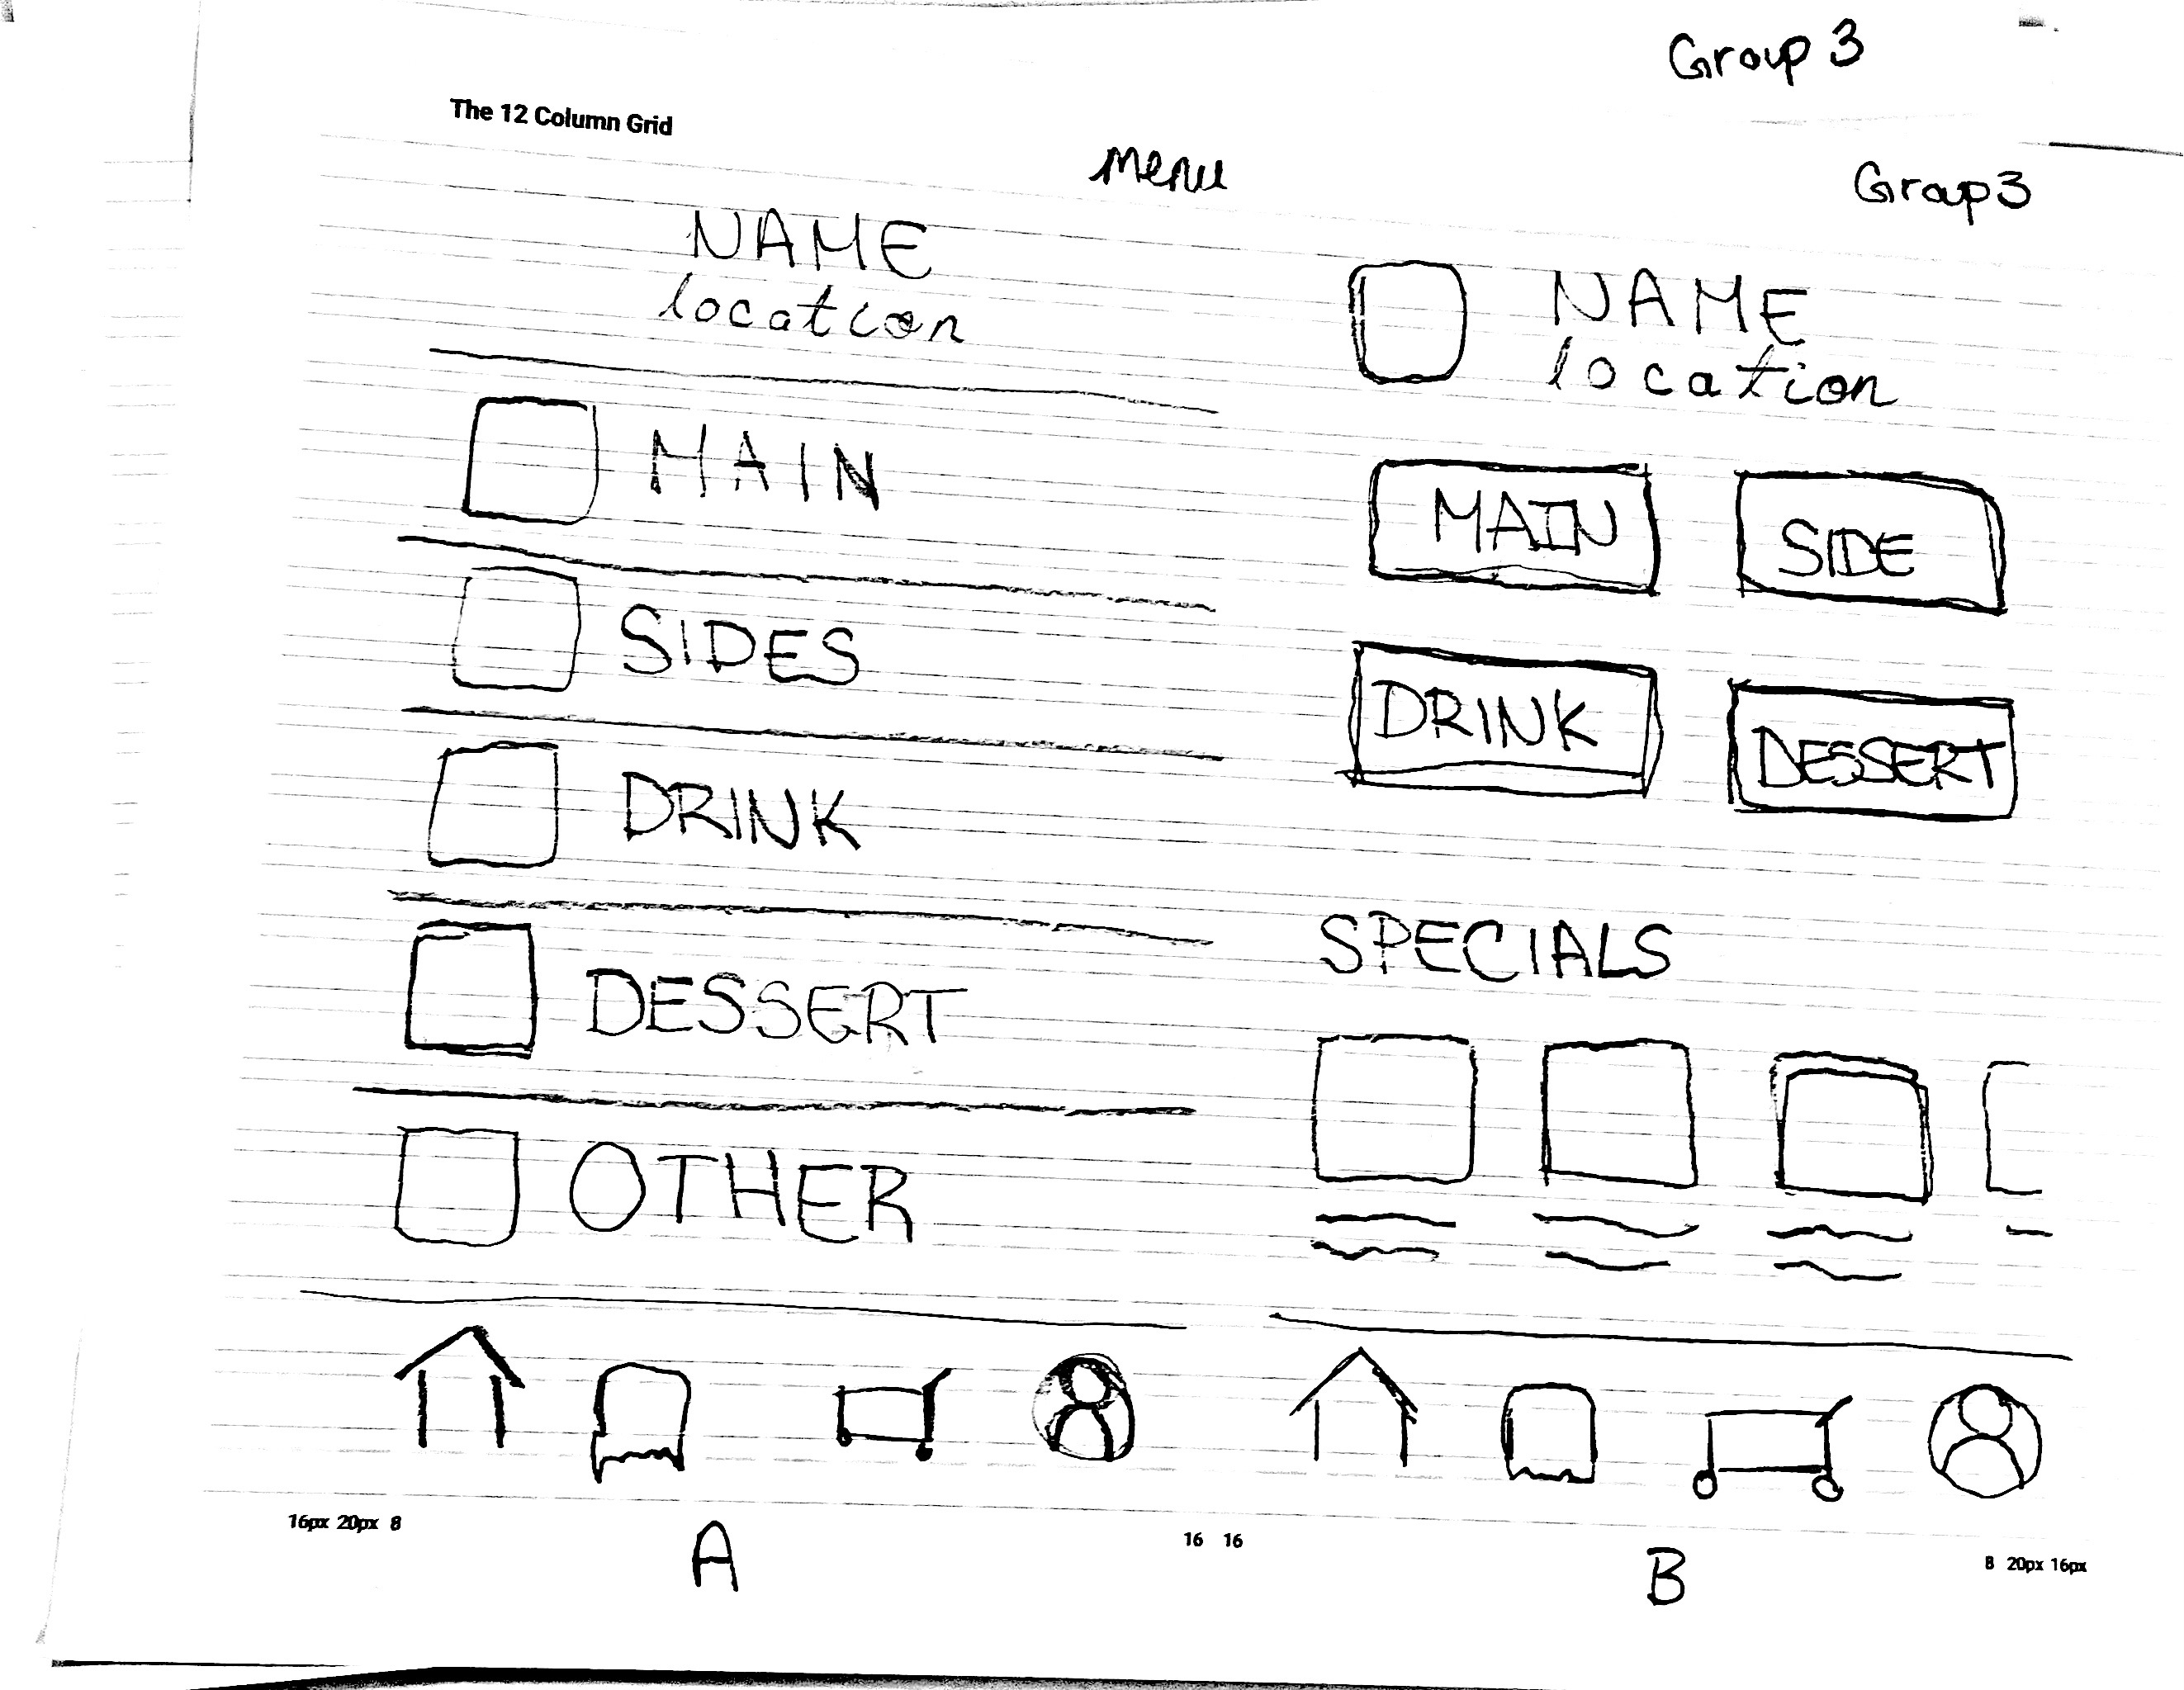 Group 3
The 12 Column Grid
Menu
Group 3
NAME
location
MAIN
SIDES
DRINK
DESSERT
OTHER
NAME
location
MAIN
SIDE
DRINK
DESSERT
SPECIALS
16px 20px 8
16 16
8 20px 16px
A
B